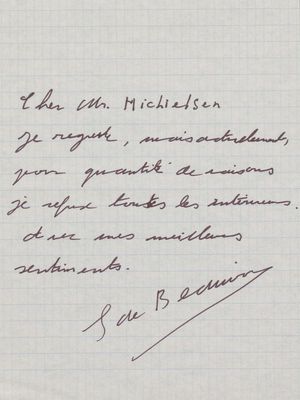 Cher Mr. Michielsen
je regrette, mais actuellement,
pour quantité de raisons
je refuse toutes les interviews.
avec mes meilleurs
sentiments.
S de Beauvoir